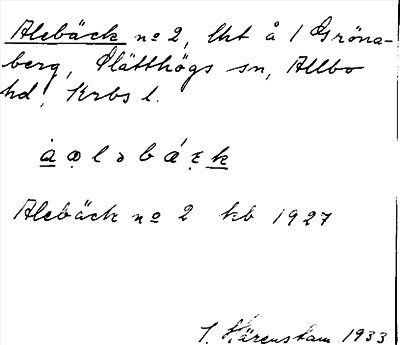 Alebäck no 2, lht å 1 Gröna-
berg, Slätthögs sn, Allbo
hd, Krbs l.
Alebäck no 2 kb 1927
J. Härenstam 1933